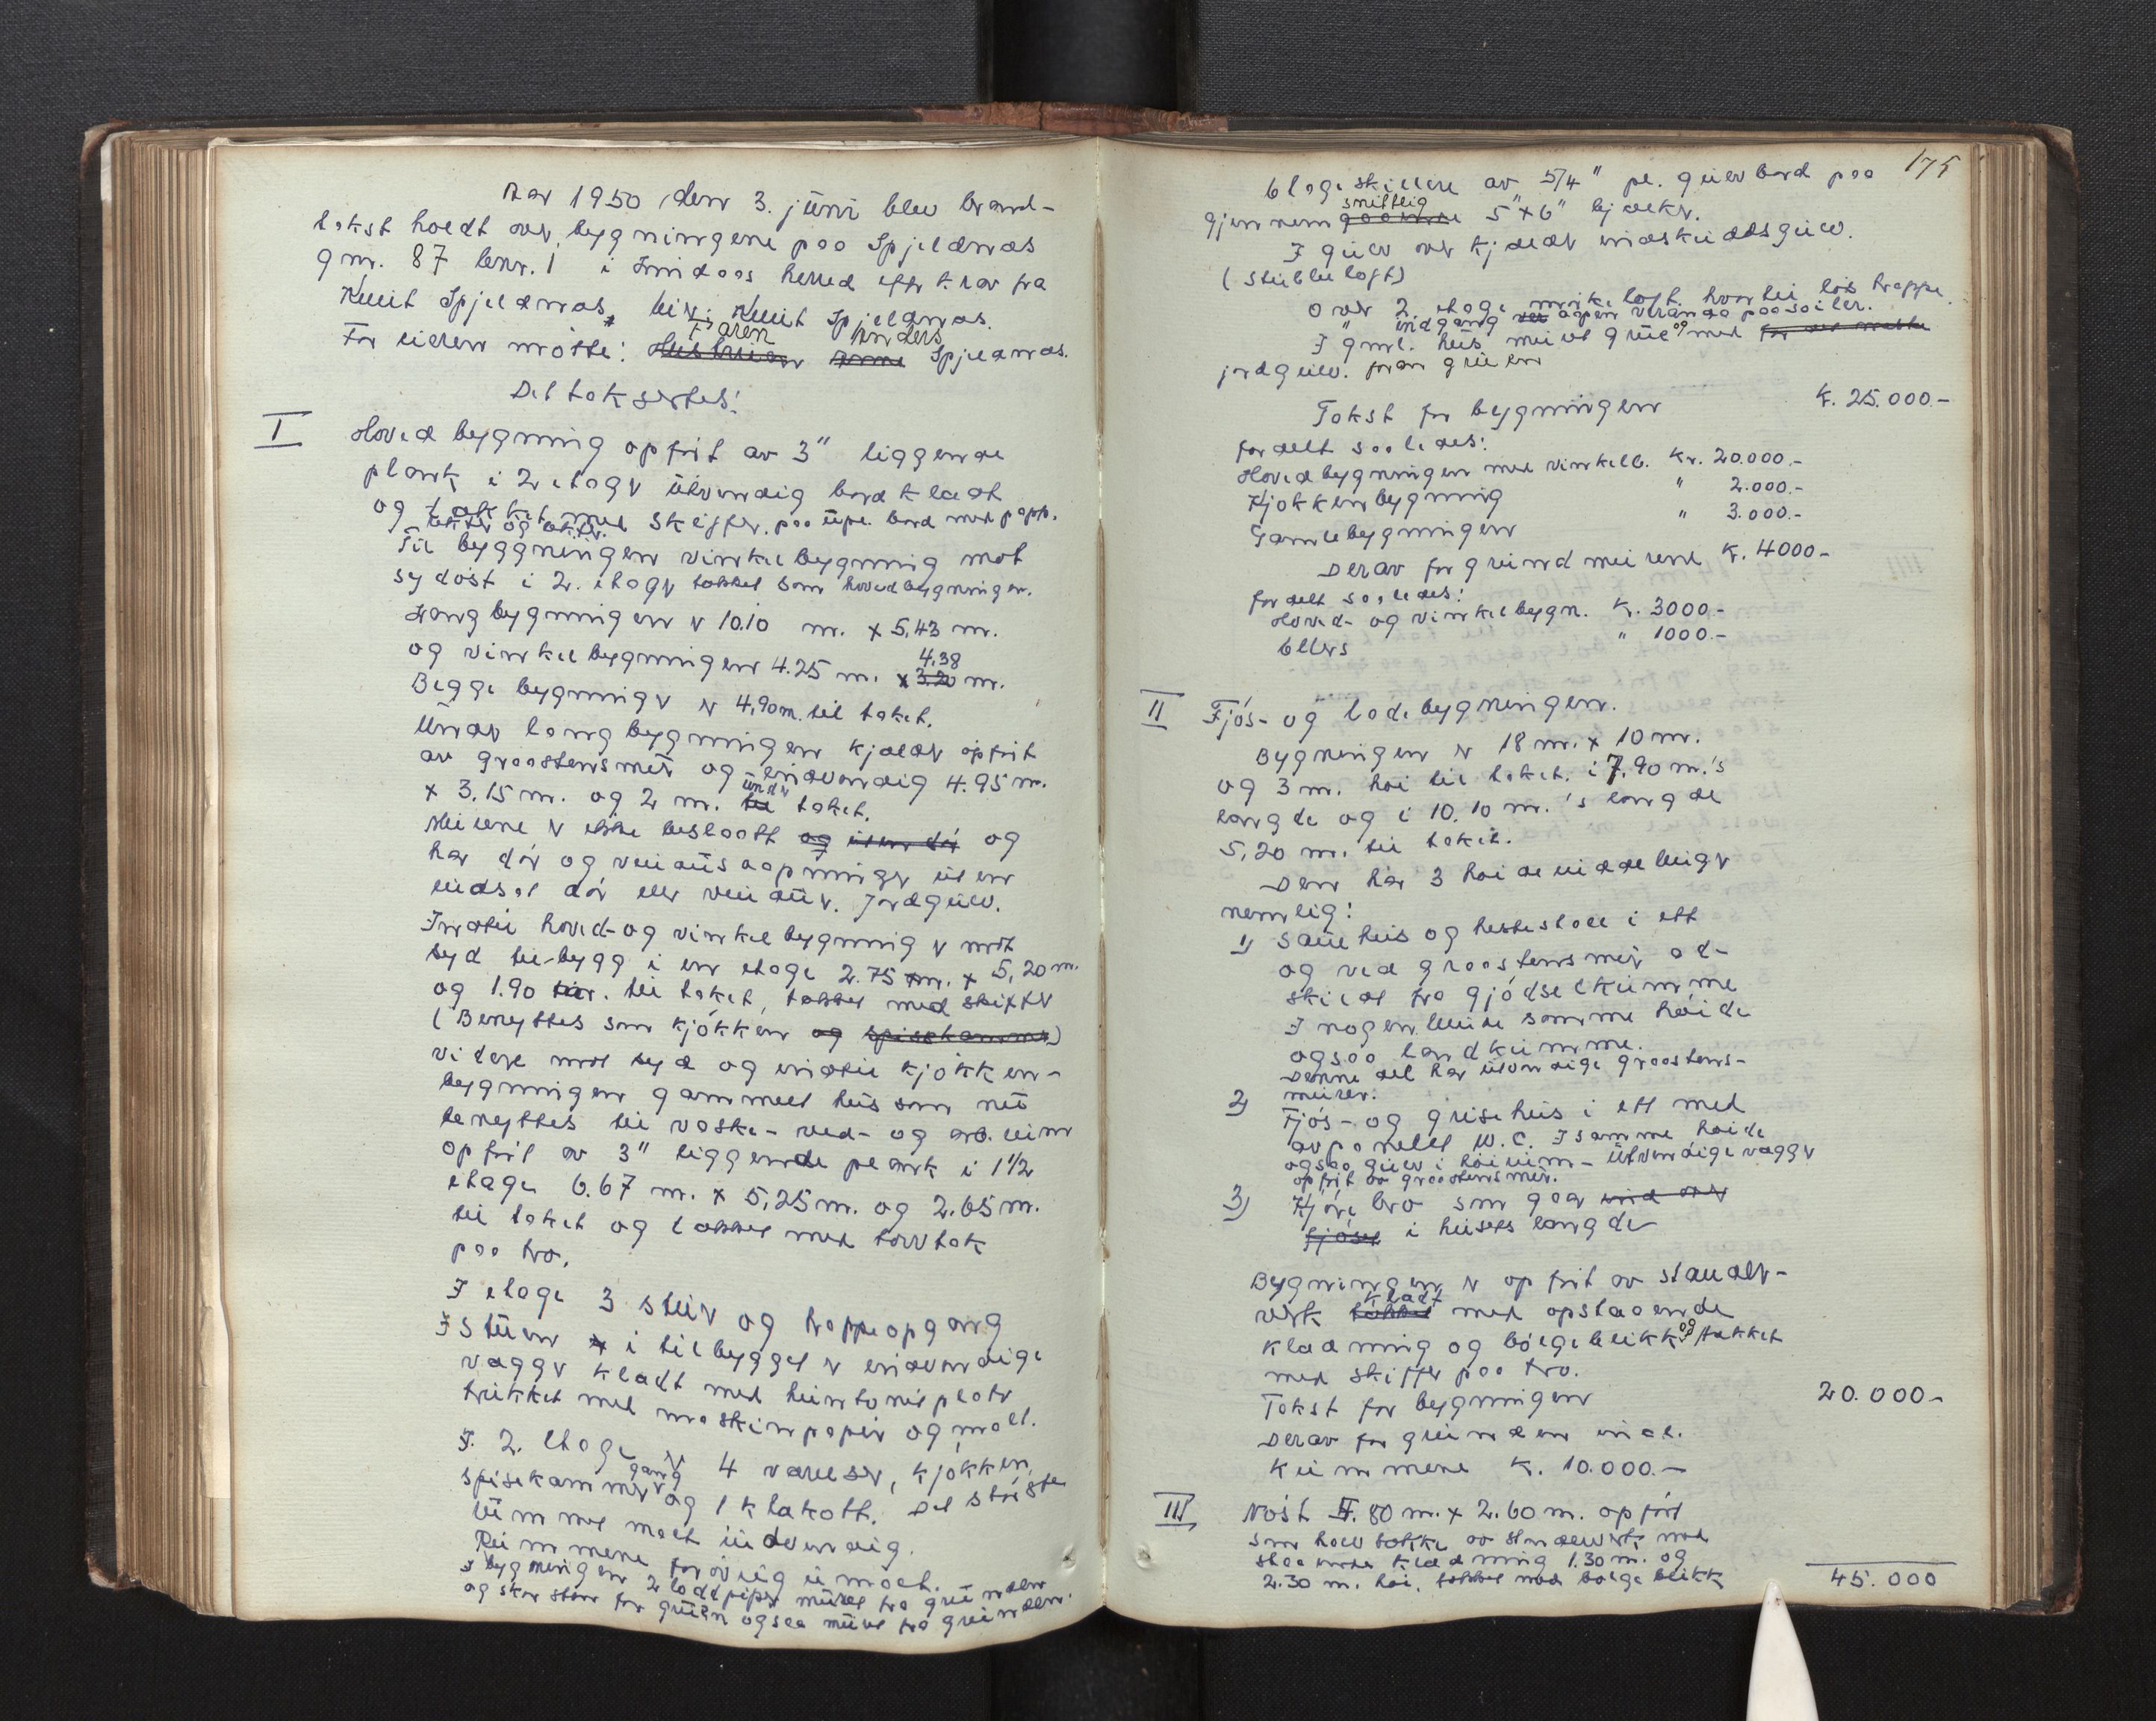 Aar 1950 den 3. juni blev brand-
takst holdt over bygningene paa Spjeldnæs
gnr. 87 bnr. 1 i Lindaas herred efter krav fra
Knut Spjeldnæs, Knut Spjeldnæs.
Faren Anders
For eieren møtte: Spjeldnæs.
Det taksertes:
I Hovedbygning opført av 3" liggende
plank i 2 etager utvendig bordklædt
og takket med skiffer paa upl. bord med papp.
Til byggningen vinkelbygning mot
sydøst i 2. etager tækket som hovedbygningen.
Langbygningen er 10.10 m. x 5,43 m.
4,38
og vinkelbygningen 4.25 m. x 3.20 m.
Begge bygninger er 4,90 m. til taket.
Under langbygningen kjælder opført
av graastensmur og indvendig 4.95 m.
under
x 3,15 m. og 2 m. til taket.
Murene er ikke beslaatt og uten dør og
har dør og vindusaapninger uten
indsat dør eller vinduer. Jordgulv.
Indtil hoved- og vinkelbygning er mot
syd til-bygg i en etage 2.75 m. x 5,20 m.
og 1.90 m. til taket, tækket med skiffer
(Benyttes som kjøkken og spisekammer)
Videre mot syd og indtil kjøkken-
bygningen gammelt hus som nu
benyttes til vaske- ved- og arb. rum
opført av 3" liggende plank i 1 1/2
etage 6.67 m. x 5,25 m. og 2.65 m.
til taket og tækket med torvtak
paa tro.
I etage 3 stuer og trappeopgang
I stuen i tilbygget er indvendige
vægger klædt med huntonitplater
trukket med maskinpapir og malt.
I 2. etage er 4 værelser, kjøkken,
gang
spisekammer og 1 klakott. Det største
rummet malt indvendig.
Rummene forøvrig umalt.
I bygningen 2 loddpiper muret fra grunden
og skorsten for gruen ogsaa muret fra grunden.
175
Etageskillere av 5/4" pl. gulvbord paa
snittlig
gjennem 5" x 6" bjælker.
I gulv over kjælder indskuddsgulv.
(stubbeloft)
Over 2. etage mørkeloft hvortil løs trappe.
indgang aapen veranda paa søiler.
I gml. hus muret grue og med
jordgulv. foran gruen
Takst for bygningen K. 25.000.-
fordelt saaledes:
Hovedbygningen med vinkelb. Kr. 20.000.-
Kjøkkenbygning " 2.000.-
Gamlebygningen " 3.000.-
Derav for grundmurene K. 4000-
fordelt saaledes:
Hoved- og vinkelbygn. K. 3000-
Ellers " 1000.-
II Fjøs- og ladebygningen.
Bygningen er 18 m. x 10 m.
og 3 m. høi til taket. i 7,90 m.'s
længde og i 10.10 m.'s længde
5,20 m. til taket.
Den har 3 høideinddelinger
nemlig:
1) Sauehus og hestestall i ett
og ved graastensmur ad-
skilt fra gjødselkumme
I nogenlunde samme høide
ogsaa landkumme.
Denne del har utvendige graastens-
murer.
2) Fjøs- og grisehus i ett med
avpanelet W.C. I samme høide
ogsaa gulv i høirum - Utvendige vægger
opført av graastensmur.
3) Kjørebro som gaar ind over
fjøset i husets længde
Bygningen er opført av stander-
klædt
verk tækket med opstaaende
klædning og bølgeblikk og tækket
med skiffer paa tro.
Takst for bygningen 20.000-
Derav for grunden incl.
kummene K. 10.000.-
III Nøst 7.80 m. x 2.60 m. opført
som halvtække av standerverk med
staaende klædning 1.30 m. og
2.30 m. høi, tækket med bølgeblikk
45.000